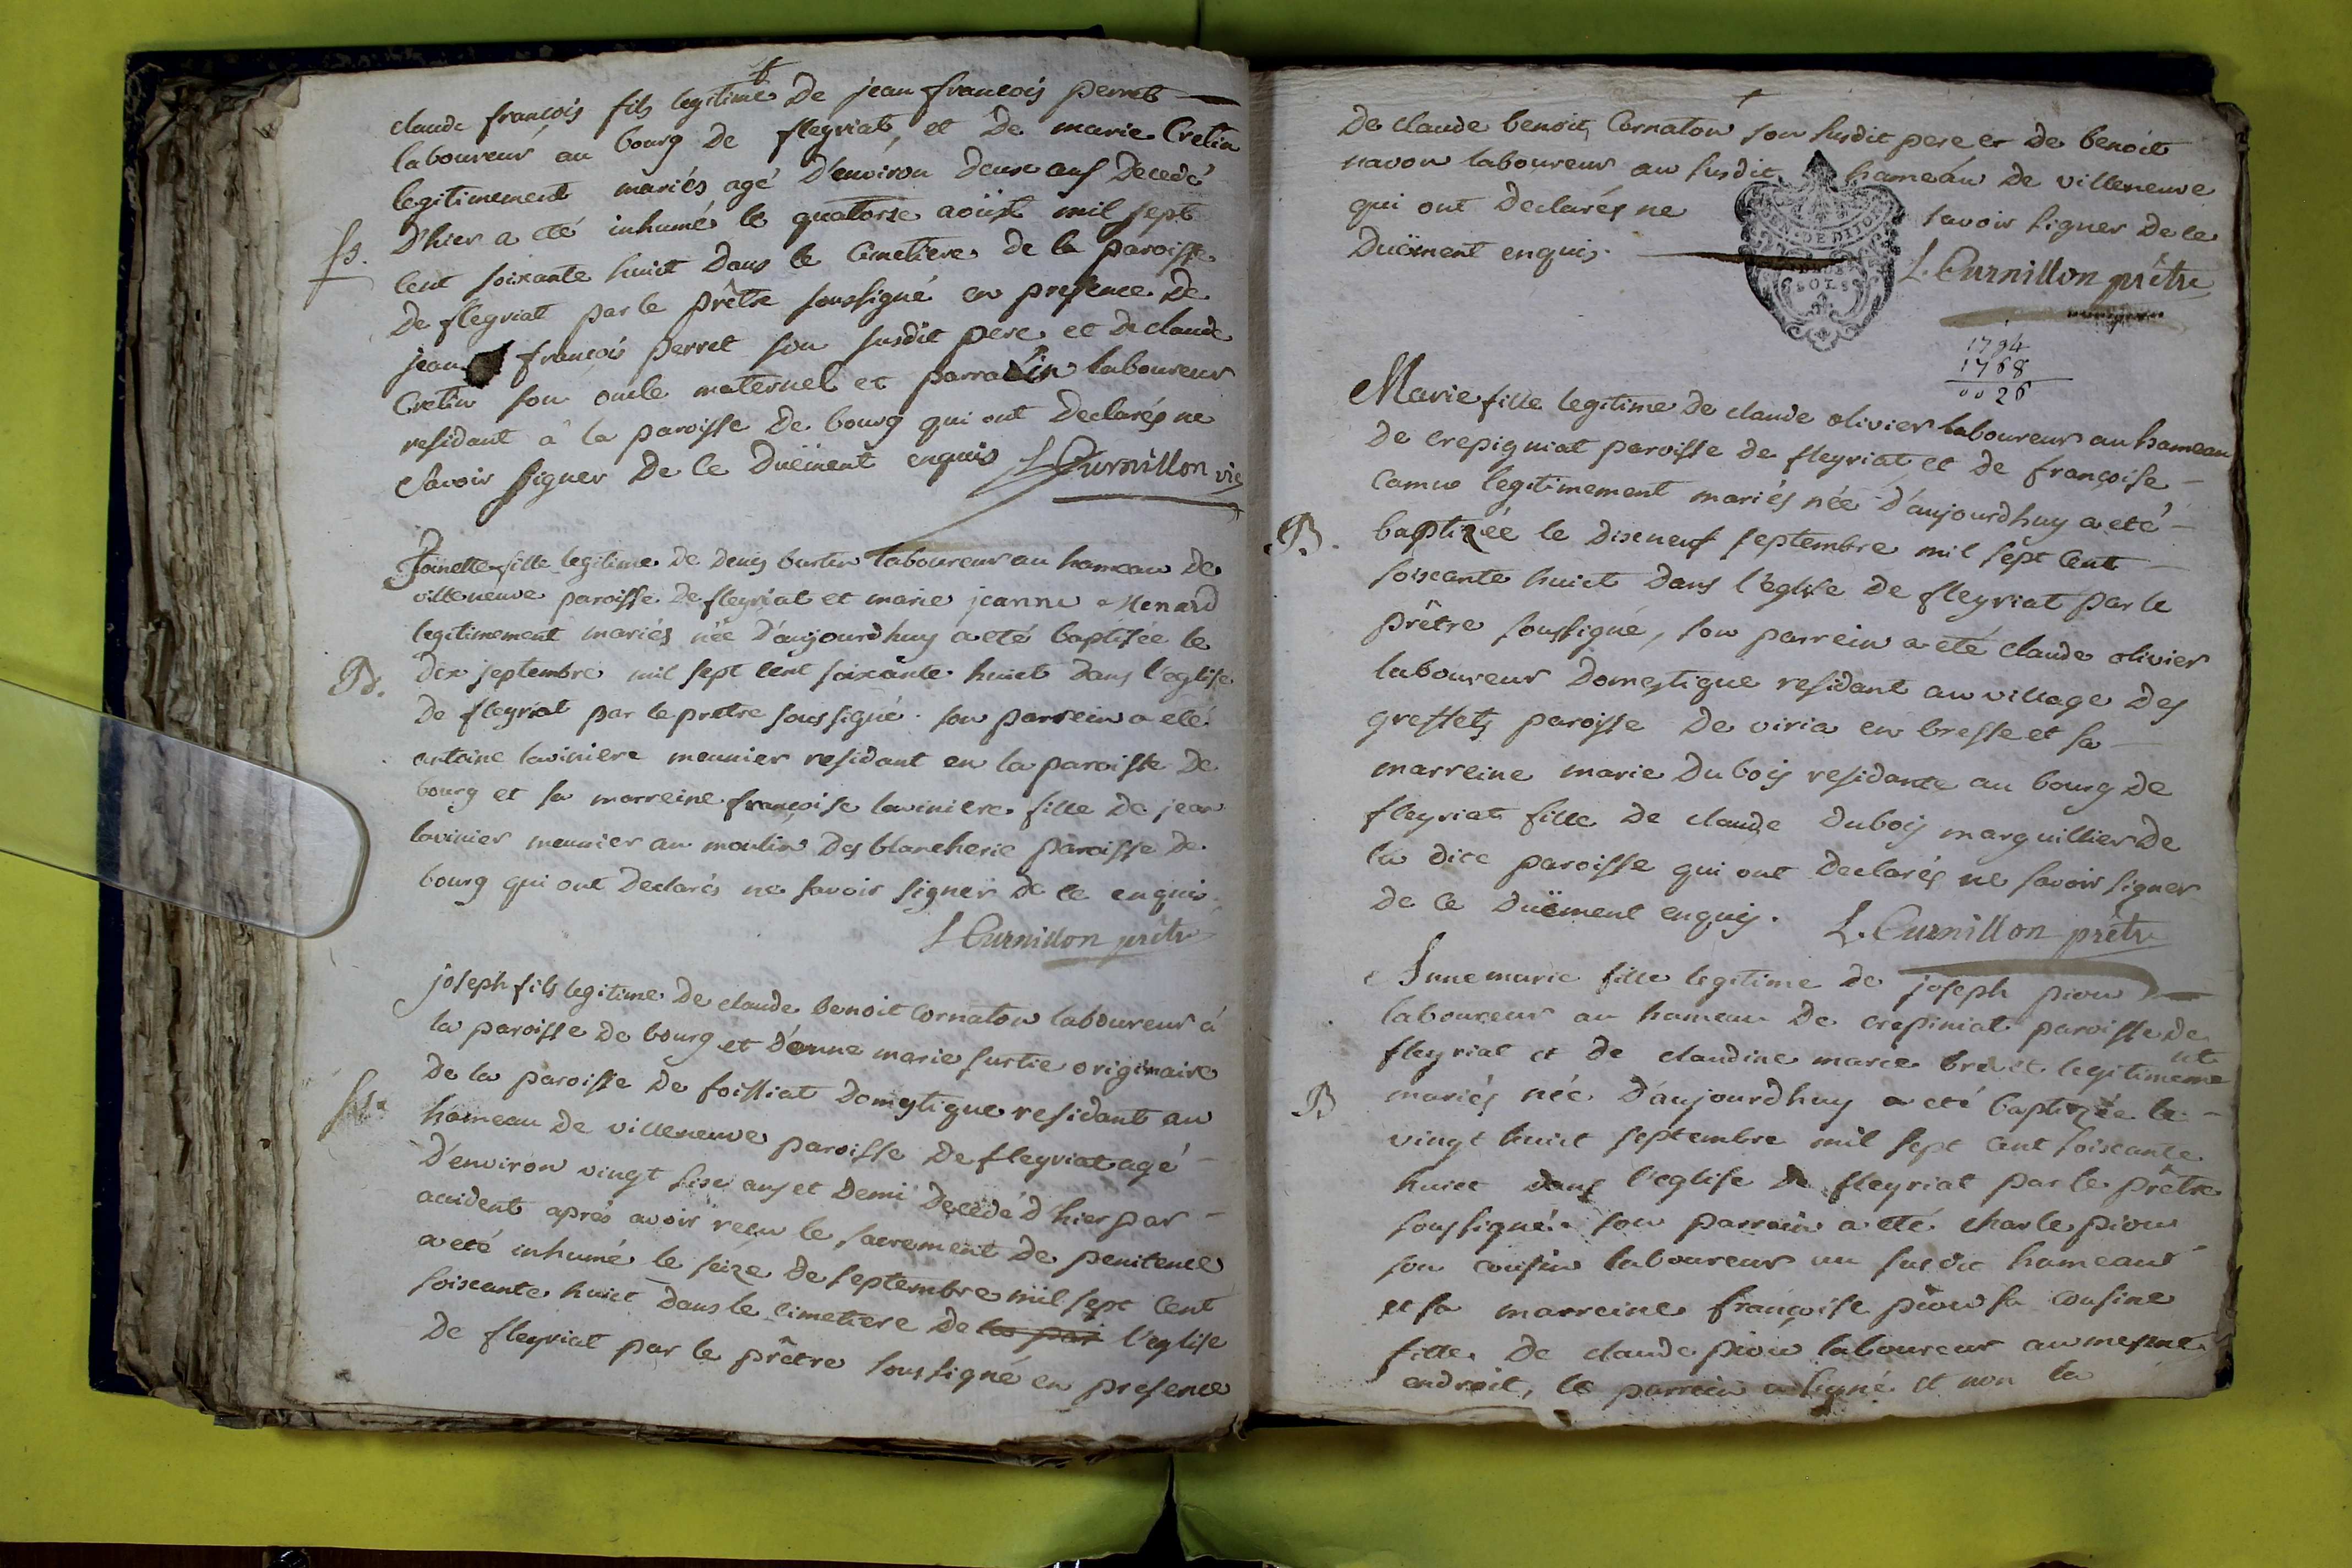 claude françois fils legitime de jean françois perret
laboureur au bourg de fleyriat, et de marie Cretin
legitimement mariés agé d'environ deux ans decedé
d'hier a eté inhumé le quatorze aoüst mil sept
cent soixante huict dans le cimetiere de la paroisse
de fleyriat par le prêtre soussigné en presence de
jean françois perret son susdit pere et de claude
Cretin son oncle maternel et parrain laboureur
residant à la paroisse de bourg qui ont declarés ne
savoir signer de ce duëment enquis L Curnillon vic
Joinette fille legitime de denis burtin laboureur au hameau de
villeneuve paroisse de fleyriat et marie jeanne Menard
legitimement mariés née d'aujourdhuy a eté baptisée le
B.
dix septembre mil sept cent soixante huict dans l'eglise
de fleyriat par le pretre soussigné. son parrein a eté
antoine laviniere meunier residant en la paroisse de
bourg et sa marreine françoise laviniere fille de jean
lavinier meunier au moulin des blancherie paroisse de
bourg qui ont declarés ne savoir signer de ce enquis.
L Curnillon prêtre
joseph fils legitime de claude benoit Cornaton laboureur à
la paroisse de bourg et d'anne marie surtie originaire
de la paroisse de foissiat domestique residant au
hameau de villeneuve paroisse de fleyriat agé
d'environ vingt sixe ans et demi decedé d'hier par
accident aprés avoir recu le sacrement de penitence
a eté inhumé le seize de septembre mil sept cent
soixante huict dans le cimetiere de la par l'eglise
de fleyriat par le prêtre soussigné en presence
de claude benoit Cornaton son susdit pere et de benoit
navon laboureur au susdit hameau de villeneuve
qui ont declarés ne savoir signer de ce
duëment enquis.
L. Curnillon prêtre
GEN. DE DIJON
1794
1768
0026
Marie fille legitime de claude olivier laboureur au hameau
de crepigniat paroisse de fleyriat et de françoise
camus legitimement mariés née d'aujourdhuy a eté
B.
baptizée le dixeneuf septembre mil sept cent
soixante huict dans l'eglise de fleyriat par le
prêtre soussigné, son parrein a eté claude olivier
laboureur domestique residant au village des
greffets paroisse de viria en bresse et sa
marreine marie dubois residante au bourg de
fleyriat fille de claude dubois marguillier de
la dite paroisse qui ont declarés ne savoir signer
de ce duëment enquis. L. Curnillon prêtre
Anne marie fille legitime de joseph piou
laboureur au hameau de crepiniat paroisse de
fleyriat et de claudine marie brevet legitimement
B
mariés née d'aujourdhuy a eté baptizée le
vingt huict septembre mil sept cent soixante
huict dans l'eglise de fleyriat par le prêtre
soussigné. son parrein a eté charle piou
son cousin laboureur au susdit hameau
et sa marreine françoise piou sa cousine
fille de claude piou laboureur au mesme
endroit, le parrein a signé et non la